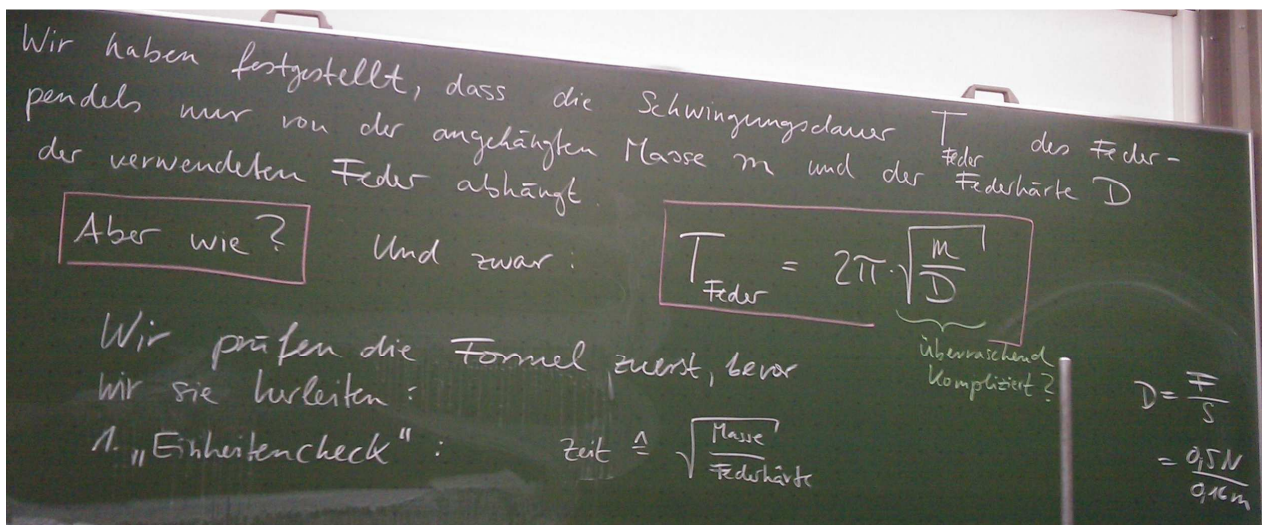 Wir haben festgestellt, dass die Schwingungsdauer T_Feder des Feder-
pendels nur von der angehängten Masse m und der Federhärte D
der verwendeten Feder abhängt.
Aber wie? Und zwar: T_Feder = 2π · √(m/D)
überraschend
kompliziert?
Wir prüfen die Formel zuerst, bevor
wir sie herleiten:
1. „Einheitencheck“: Zeit ≙ √(Masse/Federhärte)
D = F/S
= 0,5N/0,16m